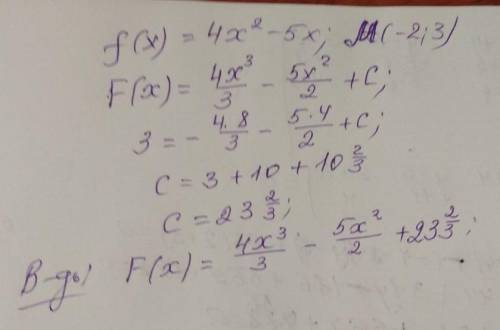 f(x) = 4x² - 5x; M(-2; 3)
F(x) = 4x³/3 - 5x²/2 + C;
3 = - 4·8/3 - 5·4/2 + C;
C = 3 + 10 + 10 2/3
C = 23 2/3;
В-дь: F(x) = 4x³/3 - 5x²/2 + 23 2/3;